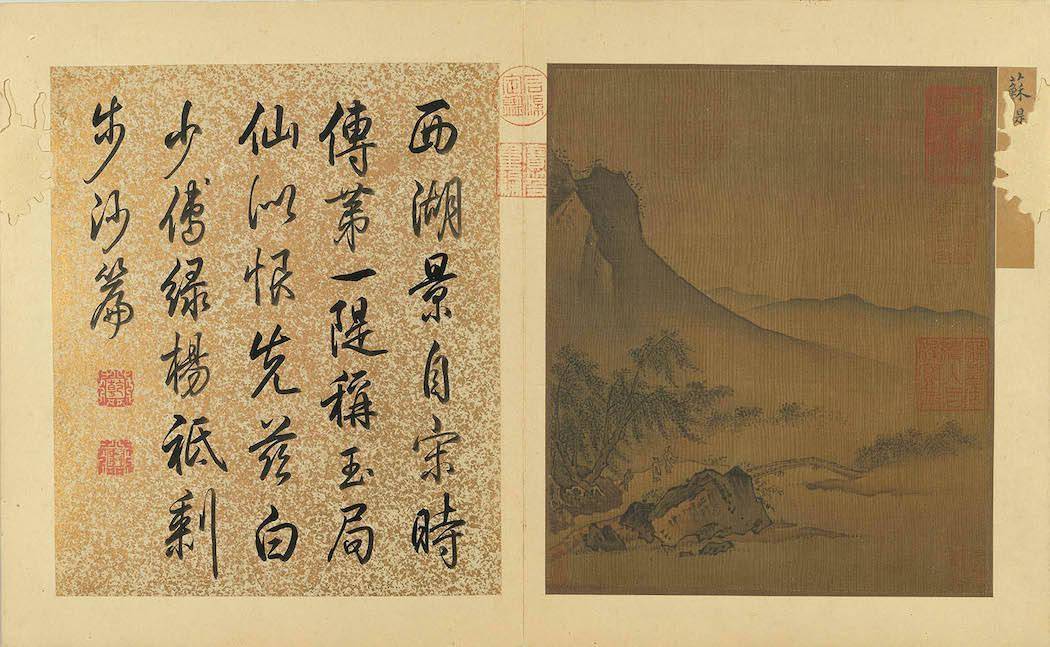 蘇
西湖景自宋時
傳苐一隄稱玉局
仙似恨先茲白
少傅綠楊祇剩
步沙篇